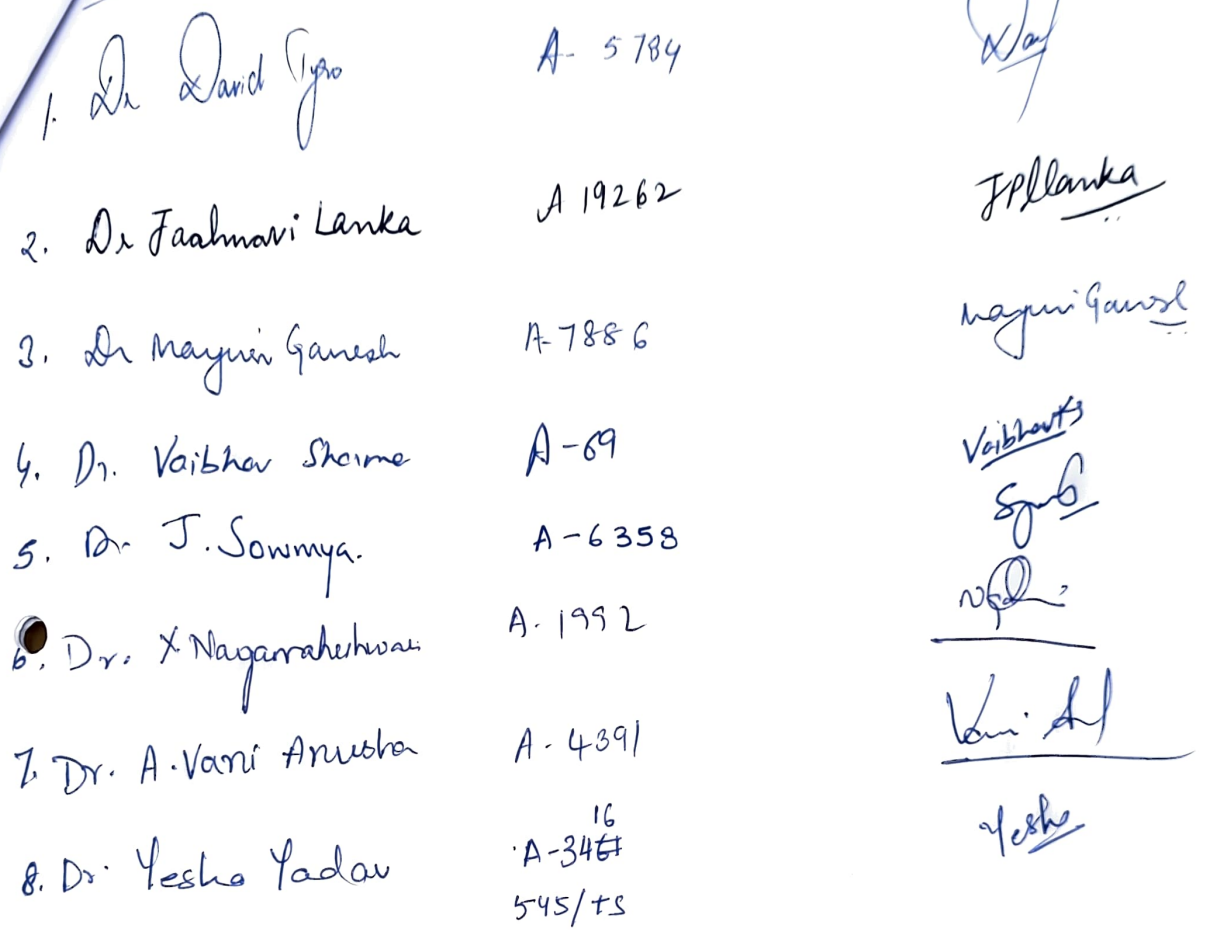 1. Dr David Tyro A- 5784
2. Dr Jaahnavi Lanka A 19262 JPLlanka
3. Dr Mayuri Ganesh A-7886 Mayuri Ganesh
4. Dr. Vaibhav Sharma A-69 Vaibhav
5. Dr J. Sowmya. A-6358
6. Dr. X Nagamaheshwari A. 1992
7. Dr. A. Vani Anusha A- 4391 Vani
16
8. Dr. Yesha Yadav A-34 Yesha
545/ts